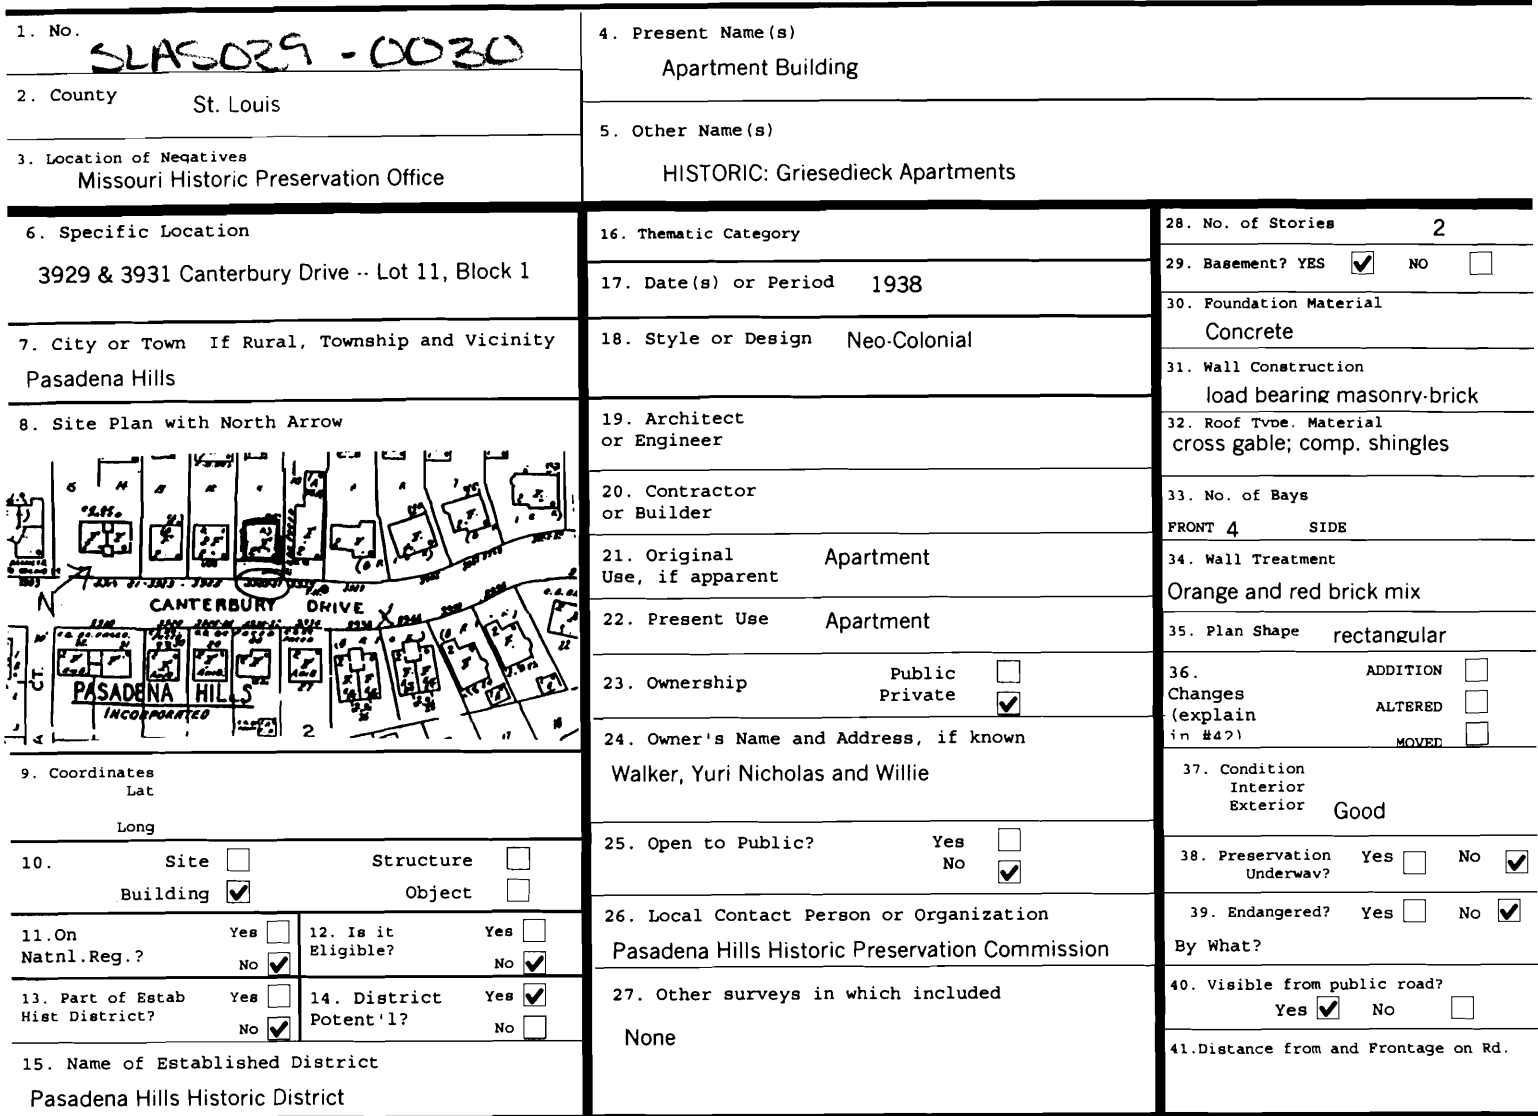 1. No.
SLAS029 - 0030
2. County
St. Louis
3. Location of Negatives
Missouri Historic Preservation Office
4. Present Name(s)
Apartment Building
5. Other Name(s)
HISTORIC: Griesedieck Apartments
6. Specific Location
3929 & 3931 Canterbury Drive -- Lot 11, Block 1
7. City or Town If Rural, Township and Vicinity
Pasadena Hills
8. Site Plan with North Arrow
N
CANTERBURY DRIVE
CT.
PASADENA HILLS
INCORPORATED
2
9. Coordinates
Lat
Long
10. Site Structure
Building Object
11.On Natnl.Reg.?
Yes
No
12. Is it Eligible?
Yes
No
13. Part of Estab Hist District?
Yes
No
14. District Potent'l?
Yes
No
15. Name of Established District
Pasadena Hills Historic District
16. Thematic Category
17. Date(s) or Period 1938
18. Style or Design Neo-Colonial
19. Architect
or Engineer
20. Contractor
or Builder
21. Original Apartment
Use, if apparent
22. Present Use Apartment
23. Ownership
Public
Private
24. Owner's Name and Address, if known
Walker, Yuri Nicholas and Willie
25. Open to Public? Yes
No
26. Local Contact Person or Organization
Pasadena Hills Historic Preservation Commission
27. Other surveys in which included
None
28. No. of Stories 2
29. Basement? YES NO
30. Foundation Material
Concrete
31. Wall Construction
load bearing masonry-brick
32. Roof Type. Material
cross gable; comp. shingles
33. No. of Bays
FRONT 4 SIDE
34. Wall Treatment
Orange and red brick mix
35. Plan Shape rectangular
36.
Changes
(explain
in #42)
ADDITION
ALTERED
MOVED
37. Condition
Interior
Exterior Good
38. Preservation Yes No
Underway?
39. Endangered? Yes No
By What?
40. Visible from public road?
Yes No
41.Distance from and Frontage on Rd.